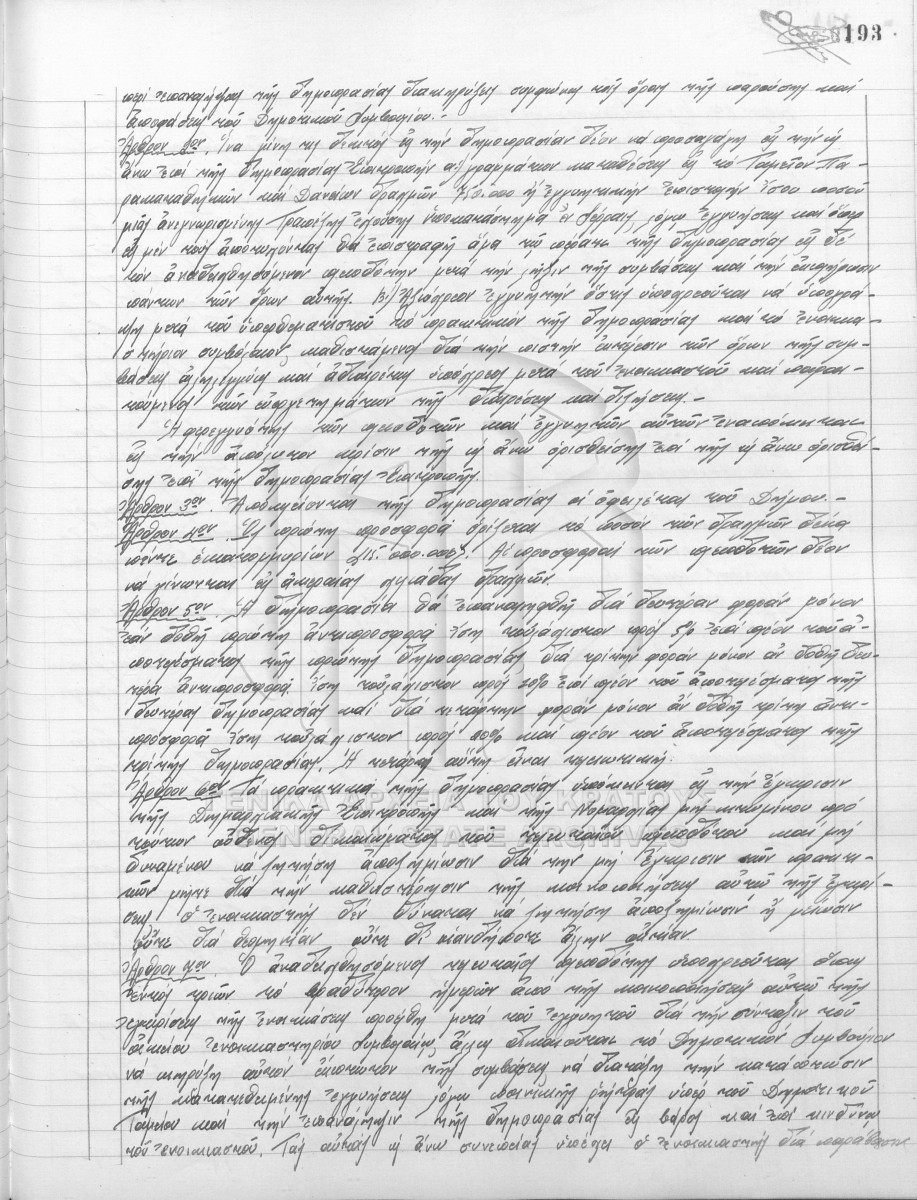 193
περί επαναλήψεως της δημοπρασίας διακηρύξεως συμφώνως τοις όροις της παρούσης και
αποφάσεως του Δημοτικού Συμβουλίου.-
Άρθρον 2ον. Ίνα γίνη τις δεκτός εις την δημοπρασίαν δέον να προσαγάγη εις την ως
άνω επί της δημοπρασίας Επιτροπήν α) γραμμάτιον καταθέσεως εις το Ταμείον Πα-
ρακαταθηκών και Δανείων δραχμών 750.000 ή εγγυητικήν επιστολήν ίσου ποσού
μιας ανεγνωρισμένης Τραπέζης εχούσης υποκατάστημα εν λόγω εγγυήσεως και όπερ
εις μεν τους αποτυχόντας θα επιστραφή άμα τω πέρατι της δημοπρασίας εις δε
τον αναδειχθησόμενον πλειοδότην μετά την λήξιν της συμβάσεως και την εκπλήρωσιν
πάντων των όρων αυτής. Β) Αξιόχρεον εγγυητήν όστις υποχρεούται να υπογρά-
ψη μετά του υπερθεματιστού το πρακτικόν της δημοπρασίας και το ενοικια-
στήριον συμβόλαιον, καθιστάμενος διά την πιστήν εκτέλεσιν των όρων της συμ-
βάσεως αλληλεγγύως και αδιαιρέτως υπόχρεος μετά του ενοικιαστού και παραι-
τούμενος των ευεργετημάτων της διαιρέσεως και διζήσεως.-
Η φερεγγυότης των πλειοδοτών και εγγυητών αυτών εναπόκειται
εις την απόλυτον κρίσιν της ως άνω ορισθείσης επί της ως άνω ορισθεί-
σης επί της δημοπρασίας Επιτροπής.
Άρθρον 3ον. Αποκλείονται της δημοπρασίας οι οφειλέται του Δήμου.-
Άρθρον 4ον. Ως πρώτη προσφορά ορίζεται το ποσόν των δραχμών δέκα
πέντε εκατομμυρίων (15.000.000). Αι προσφοραί των πλειοδοτών δέον
να γίνωνται εις ακεραίας χιλιάδας δραχμών.
Άρθρον 5ον. Η δημοπρασία θα επαναληφθή διά δευτέραν φοράν μόνον
εάν δοθή πρώτη αντιπροσφορά ίση τουλάχιστον προς 5% επί πλέον του α-
ποτελέσματος της πρώτης δημοπρασίας διά τρίτην φοράν μόνον αν δοθή δευ-
τέρα αντιπροσφορά ίση τουλάχιστον προς 10% επί πλέον του αποτελέσματος της
δευτέρας δημοπρασίας και διά τετάρτην φοράν μόνον αν δοθή τρίτη αντι-
προσφορά ίση τουλάχιστον προς 10% και πλέον του αποτελέσματος της
τρίτης δημοπρασίας. Η τετάρτη αύτη είναι τελειωτική.
Άρθρον 6ον Τα πρακτικά της δημοπρασίας υπόκεινται εις την έγκρισιν
της Δημαρχιακής Επιτροπής και της Νομαρχίας μη κτωμένου προ
τούτων ουδενός δικαιώματος του τελευταίου πλειοδότου και μη
δυναμένου να ζητήση αποζημίωσιν διά την μη έγκρισιν των πρακτι-
κών μήτε διά την καθυστέρησιν της κοινοποιήσεως αυτώ της εγκρί-
σεως ο ενοικιαστής δεν δύναται να ζητήση αποζημίωσιν ή μείωσιν
ούτε διά θεομηνίαν ούτε δι' οιανδήποτε άλλην αιτίαν.
Άρθρον 7ον. Ο αναδειχθησόμενος τελευταίος πλειοδότης υποχρεούται όπως
εντός τριών το βραδύτερον ημερών από της κοινοποιήσεως αυτώ της
εγκρίσεως της ενοικιάσεως προσέλθη μετά του εγγυητού διά την σύνταξιν του
οικείου ενοικιαστηρίου συμβολαίου, άλλως δικαιούται το Δημοτικόν Συμβούλιον
να κηρύξη αυτόν έκπτωτον της συμβάσεως να διατάξη την κατάπτωσιν
της κατατεθειμένης εγγυήσεως λόγω ποινικής ρήτρας υπέρ του Δημοτικού
Ταμείου και την επανάληψιν της δημοπρασίας εις βάρος και επί κινδύνω
του ενοικιαστού. Τας αυτάς ως άνω συνεπείας υπέχει ο ενοικιαστής διά παράβασιν
ΓΕΝΙΚΑ ΑΡΧΕΙΑ ΤΟΥ ΚΡΑΤΟΥΣ
GENERAL STATE ARCHIVES